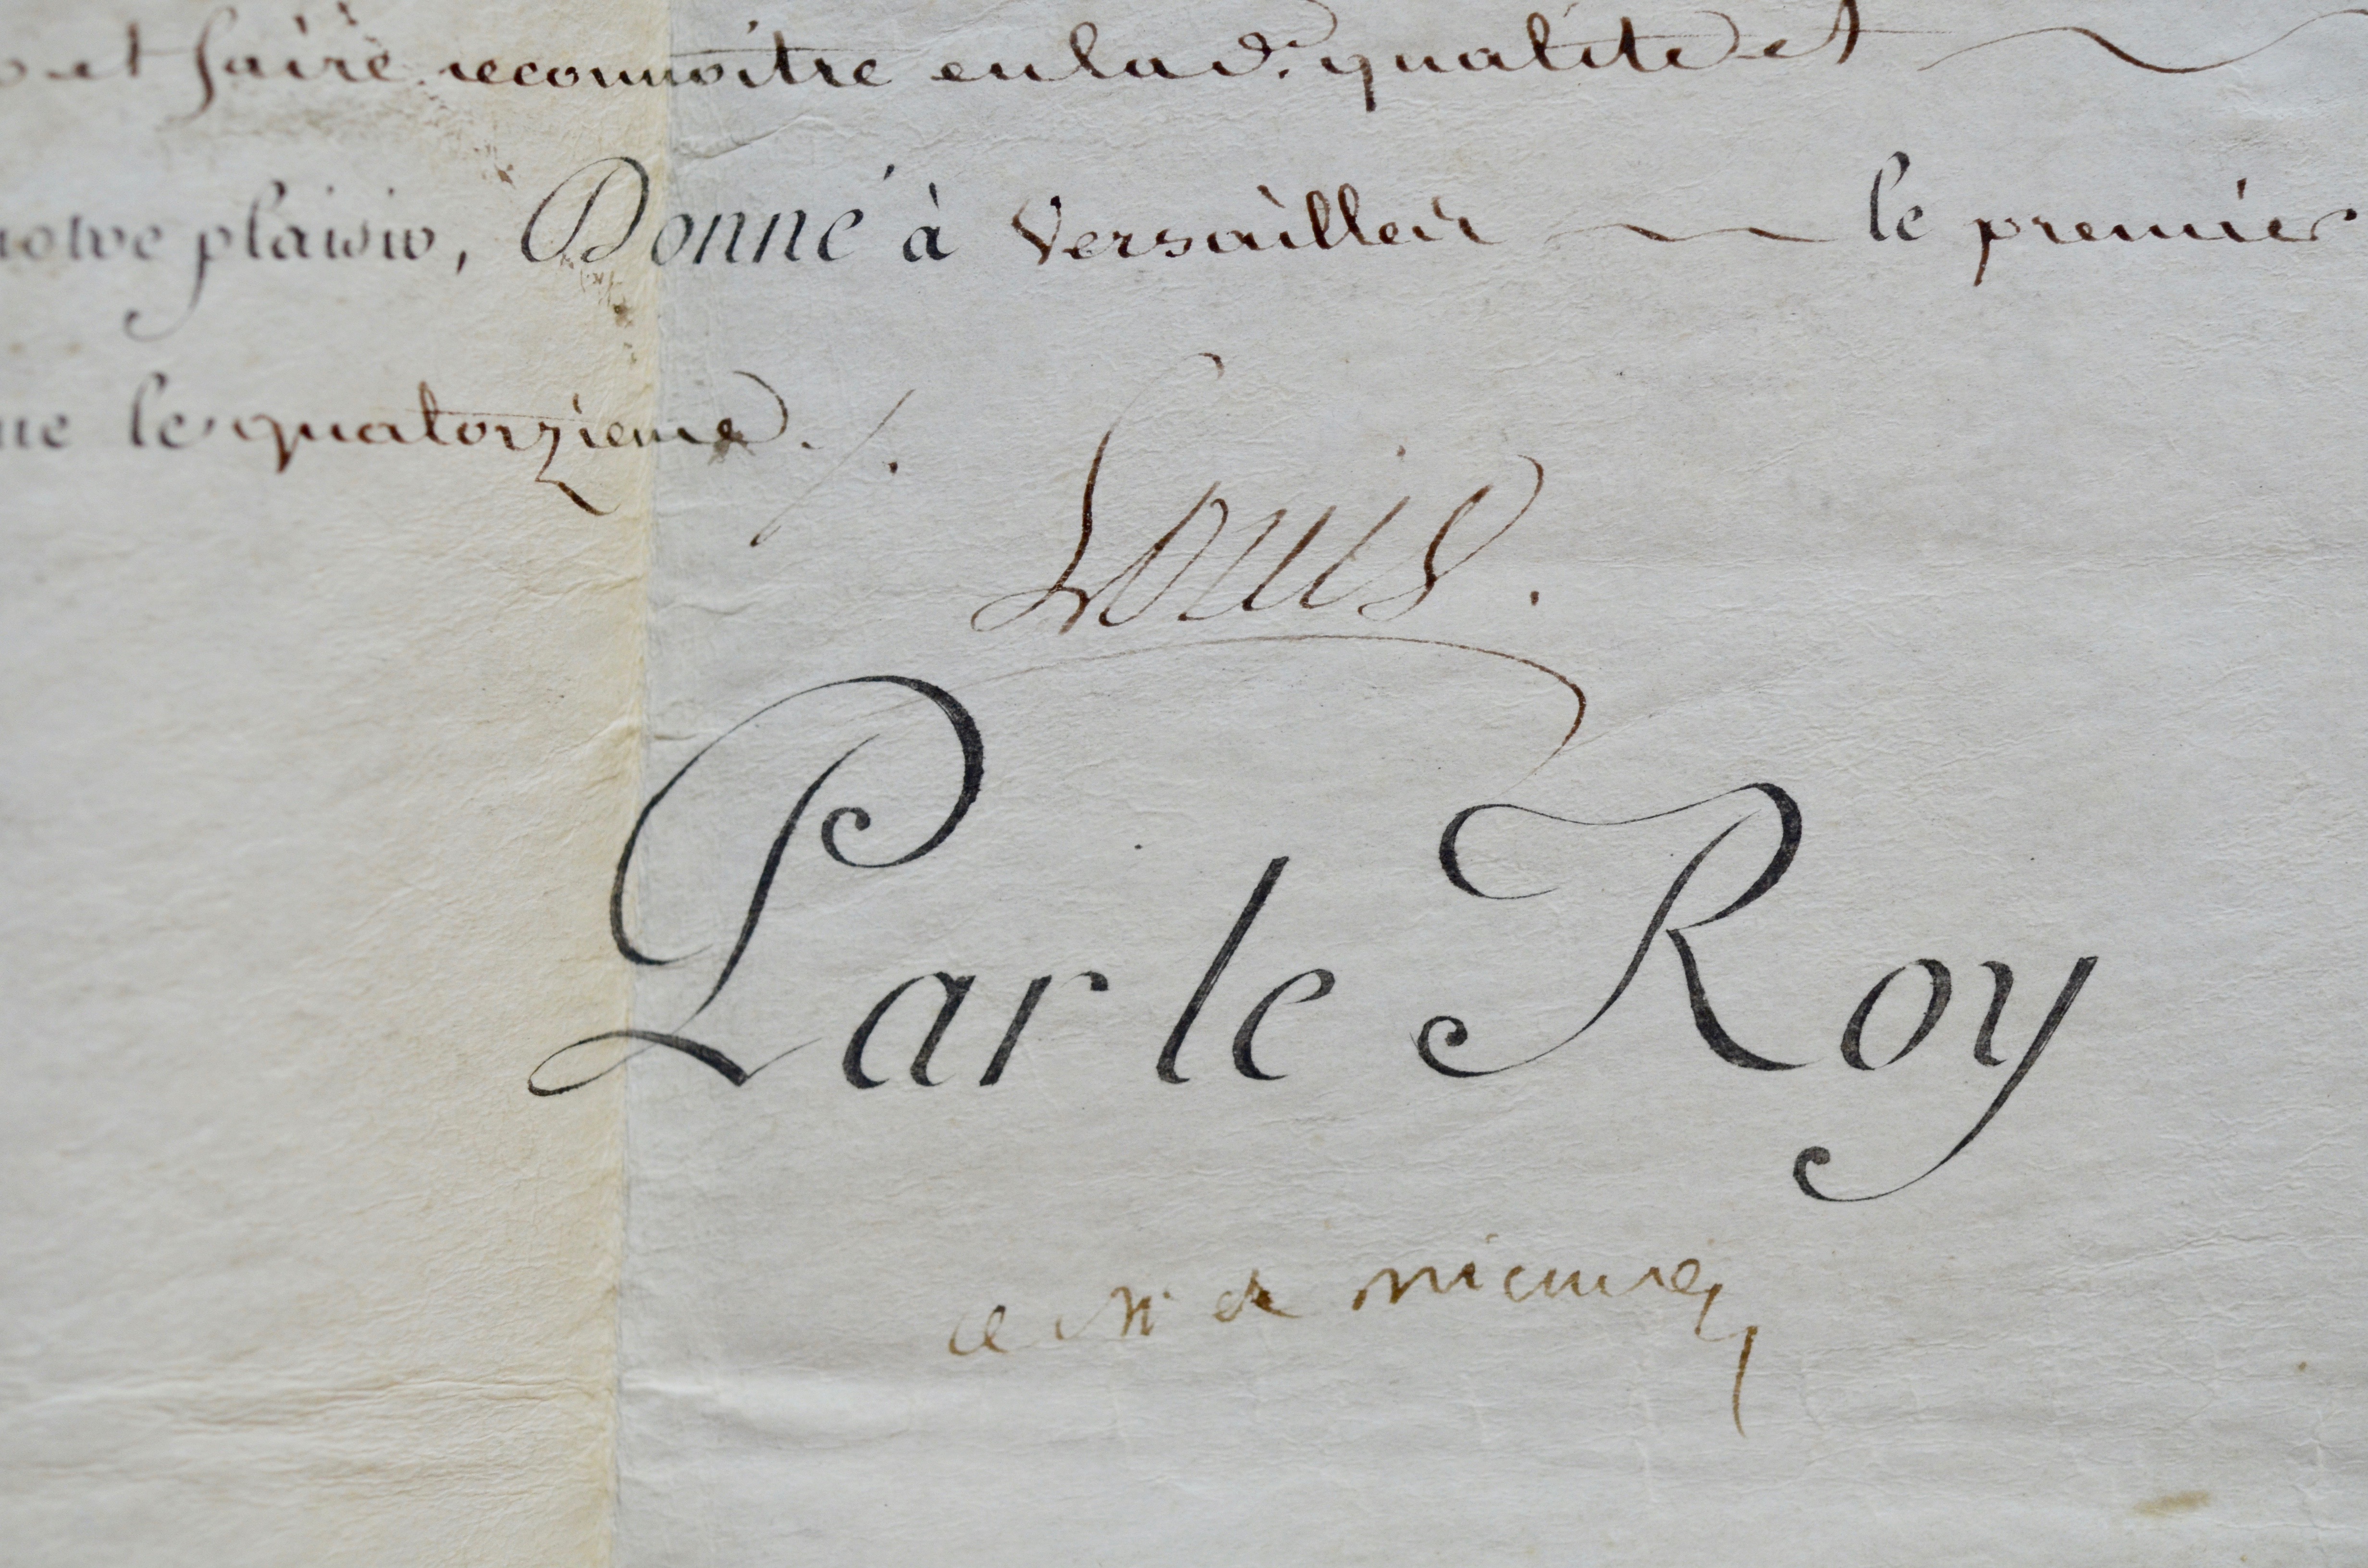 et faire reconnoitre en lad. qualité et
notre plaisir, Donné à Versailles le premier
le quatorzieme ./.
Louis.
Par le Roy